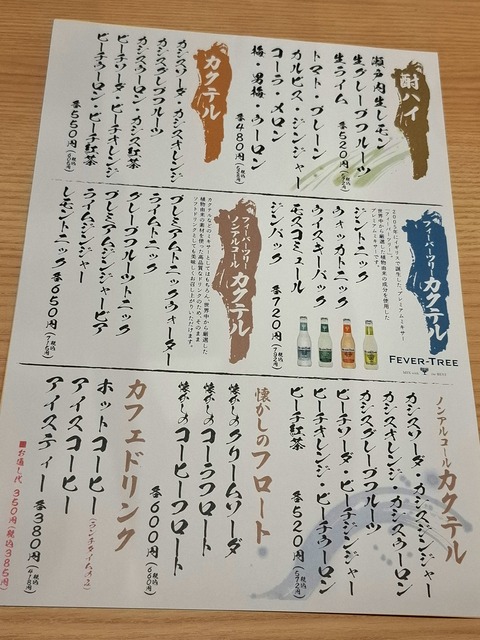 酎ハイ
瀬戸内生レモン
生グレープフルーツ
生ライム 各520円(税込572円)
トマト・プレーン
カルピス・ジンジャー
コーラ・メロン
梅・男梅・ウーロン
各480円
カクテル
カシスソーダ・カシスオレンジ
カシスグレープフルーツ
カシスウーロン・カシス紅茶
ピーチソーダ・ピーチオレンジ
ピーチウーロン・ピーチ紅茶
各550円(税込605円)
フィーバーツリー
カクテル
2005年にイギリスで誕生した、プレミアムミキサー
「フィーバーツリー」。
世界中から厳選した植物由来の成分を使用した
プレミアムミキサーです。
FEVER-TREE
ジントニック
ウォッカトニック
ウイスキーバック
モスコミュール
ジンバック 各720円(税込792円)
フィーバーツリー
ノンアルコール カクテル
カクテルなどのミキサーとしてはもちろん、世界中から厳選した
植物由来の素材を使った高品質なドリンクのため、そのまま
ソフトドリンクとしても美味しくお召し上がりいただけます。
プレミアムトニックウォーター
ライムトニック
グレープフルーツトニック
プレミアムジンジャービア
ライムジンジャー
レモントニック 各650円(税込715円)
ノンアルコール カクテル
カシスソーダ・カシスジンジャー
カシスオレンジ・カシスウーロン
カシスグレープフルーツ
ピーチソーダ・ピーチジンジャー
ピーチオレンジ・ピーチウーロン
ピーチ紅茶 各520円(税込572円)
懐かしのフロート
懐かしのクリームソーダ
懐かしのコーラフロート
懐かしのコーヒーフロート
各600円(税込660円)
カフェドリンク
ホットコーヒー(ランチタイムのみ)
アイスコーヒー
アイスティー 各380円(税込418円)
■お通し代 350円(税込385円)